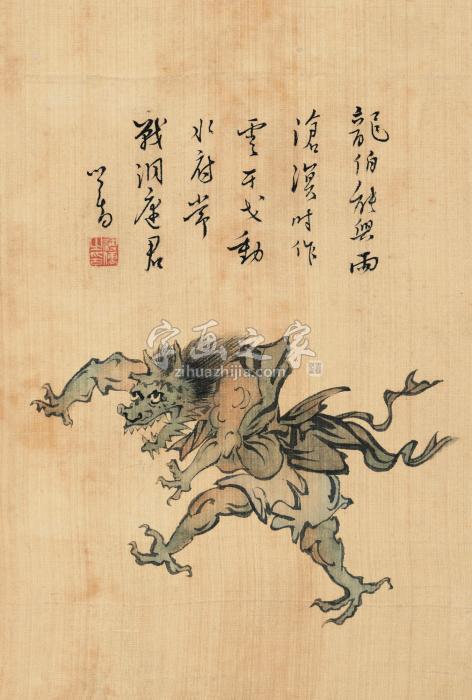 龍伯能興雨
滄溟時作
雲干戈動
水府常
戰洞庭君
心畬
字画之家
zihuazhijia.com